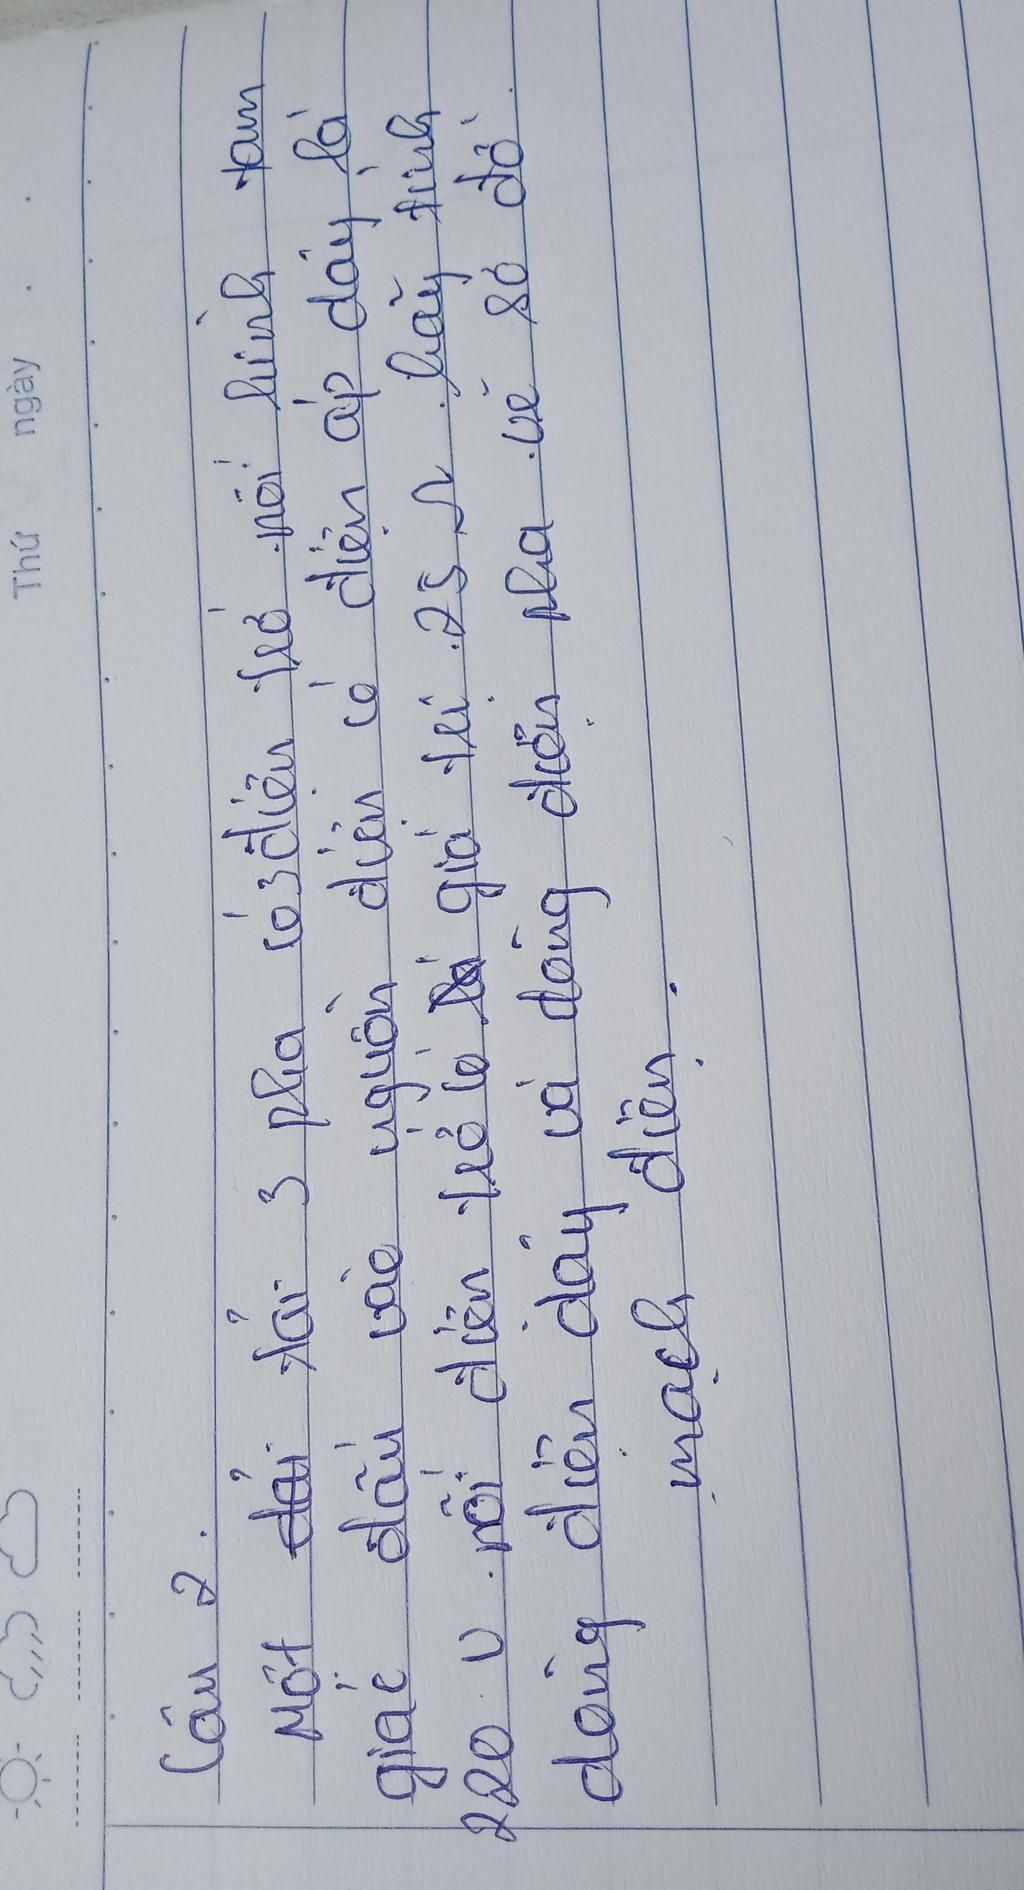 Thứ ngày
Câu 2.
Một tải 3 pha có 3 điện trở nối hình tam
giác đấu vào nguồn điện có điện áp dây là
220 V. mỗi điện trở có giá trị 25 Ω. hãy tính
dòng điện dây và dòng điện pha. vẽ sơ đồ
mạch điện.